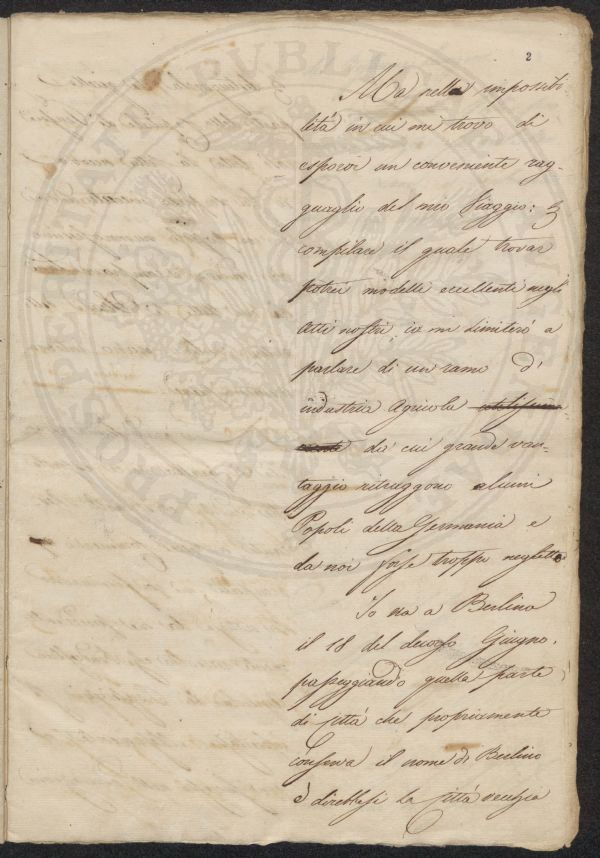 2
Ma nella impossibi
lità in cui mi trovo di
esporvi un conveniente rag-
guaglio del mio Viaggio: a
compilare il quale trovar
potrei modelli eccellenti negli
Atti nostri, io mi limiterò a
parlare di un ramo d'
industria Agricola
di cui grande van-
taggio ritraggono alcuni
Popoli della Germania e
da noi forse troppo negletto
Io era a Berlino
il 18 del decorso Giugno.
passeggiando quella parte
di città che propriamente
conserva il nome di Berlino
e direbbesi la Città vecchia
PUBLIC
PROSPERITATI